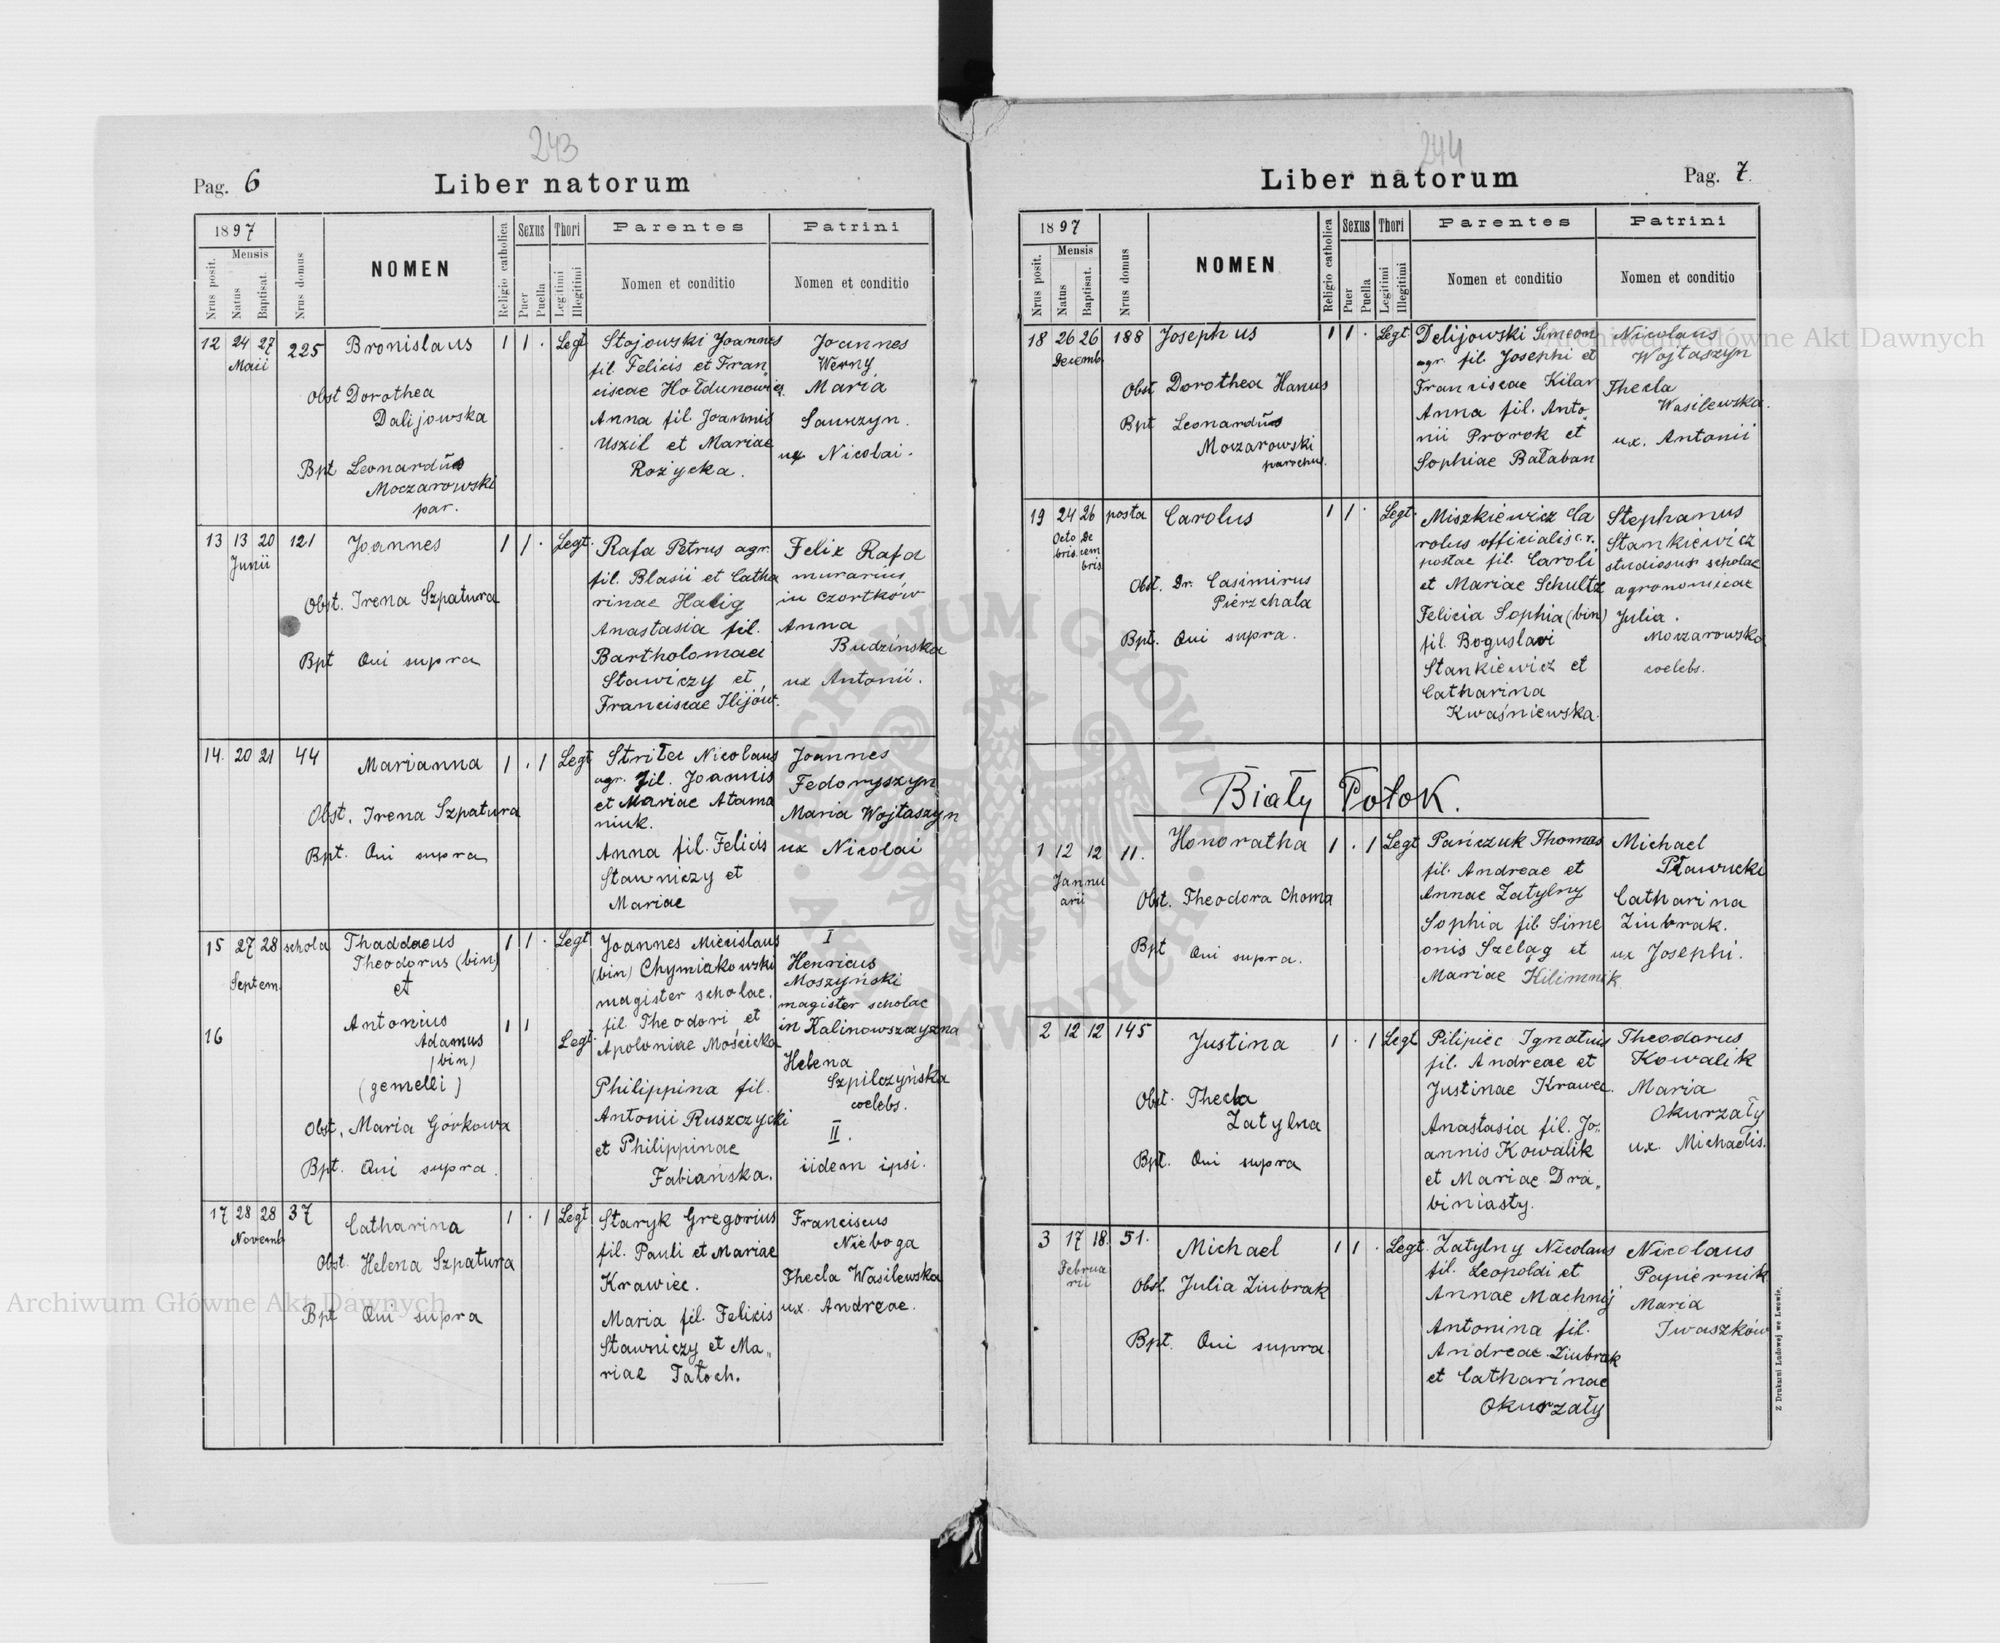 243
Pag. 6
Liber natorum
1897
Nrus posit.
Mensis
Natus
Baptisat.
Nrus domus
NOMEN
Religio catholica
Sexus
Puer
Puella
Thori
Legitimi
Illegitimi
Parentes
Nomen et conditio
Patrini
Nomen et conditio
12 24 27 225 Bronislaus 1 1 . Legt Stojowski Joannes Joannes
Maii fil Felicis et Fran„ Werny
ciscae Hołdunowicz. Maria
Obst Dorothea
Dalijowska Anna fil. Joannis Sawczyn.
Uszil et Mariae ux Nicolai.
Bpt Leonardus Rożycka.
Moczarowski
par.
13 13 20 121 Joannes 1 1 . Legt. Rafa Petrus agr. Felix Rafa
Junii fil. Blasii et Catha murarius
Obst. Irena Szpatura rinae Halig in Czortków
Anastasia fil. Anna
Bartholomaei Budzińska
Bpt Qui supra Stawiczy et ux Antonii.
Franciscae Ilijów.
14. 20 21 44 Marianna 1 . 1 Legt Strilec Nicolaus Joannes
agr. fil. Joannis Fedoryszyn
Obst. Irena Szpatura et Mariae Atama Maria Wojtaszyn
niuk.
Bpt. Qui supra Anna fil. Felicis ux Nicolai
Stawniczy et
Mariae
15 27 28 schola Thaddaeus 1 1 . Legt Joannes Miecislaus I
Theodorus (bin) (bin) Chymiakowski Henricus
Septem. et magister scholae. Moszyński
fil Theodori et magister scholae
16 Antonius 1 1 Legt. Apoloniae Mościcka in Kalinowszczyzna
Adamus Helena
(bin) Philippina fil. Szpilczyńska
(gemelli) Antonii Ruszczycki coelebs.
Obst. Maria Górkowa et Philippinae II.
Bpt. Qui supra. Fabiańska. iidem ipsi.
17 28 28 37 Catharina 1 . 1 Legt Staryk Gregorius Franciscus
Novemb fil. Pauli et Mariae Nieboga
Obst. Helena Szpatura Krawiec. Thecla Wasilewska
Bpt Qui supra Maria fil. Felicis ux. Andreae.
Stawniczy et Ma„
riae Tatoch.
244
Liber natorum
Pag. 7.
1897
Nrus posit.
Mensis
Natus
Baptisat.
Nrus domus
NOMEN
Religio catholica
Sexus
Puer
Puella
Thori
Legitimi
Illegitimi
Parentes
Nomen et conditio
Patrini
Nomen et conditio
18 26 26 188 Josephus 1 1 . Legt Delijowski Simeon Nicolaus
Decemb. agr. fil Josephi et Wojtaszyn
Obst Dorothea Hanus Franciscae Kilar Thecla
Anna fil. Anto„ Wasilewska.
Bpt Leonardus nii Prorok et ux. Antonii
Moczarowski Sophiae Bałaban
parochus.
19 24 26 posta Carolus 1 1 . Legt. Miszkiewicz Ca Stephanus
Octo De rolus officialis c.r. Stankiewicz
bris. cem postae fil. Caroli studiosus scholae
bris et Mariae Schultz agronomicae
Obst. Dr. Casimirus Felicia Sophia (bin) Julia.
Pierzchała fil Boguslavi Moczarowska
Bpt. Qui supra. Stankiewicz et coelebs.
Catharina
Kwaśniewska.
Biały Potok.
1 12 12 11. Honoratha 1 . 1 Legt Pańczuk Thomas Michael
Jannu fil. Andreae et Pławucki
arii Annae Zatylny Catharina
Obst. Theodora Choma Sophia fil Sime Ziubrak.
Bpt Qui supra. onis Szeląg et ux Josephi.
Mariae Kilimnik
2 12 12 145 Justina 1 . 1 Legt Pilipiec Ignatius Theodorus
fil. Andreae et Kowalik
Obst. Thecla Justinae Krawec. Maria
Zatylna Anastasia fil. Jo„ Okurzały
annis Kowalik ux. Michaelis.
Bpt. Qui supra et Mariae Dra„
biniasty.
3 17 18. 51. Michael 1 1 . Legt. Zatylny Nicolaus Nicolaus
Februa fil. Leopoldi et Papiernik
rii Annae Machnij Maria
Obst. Julia Ziubrak Antonina fil. Iwaszków
Bpt. Qui supra. Andreae Ziubrak
et Catharinae
Okurzały
Z Drukarni Ludowej we Lwowie.
Archiwum Główne Akt Dawnych
Archiwum Główne Akt Dawnych
ARCHIWUM GŁÓWNE AKT DAWNYCH